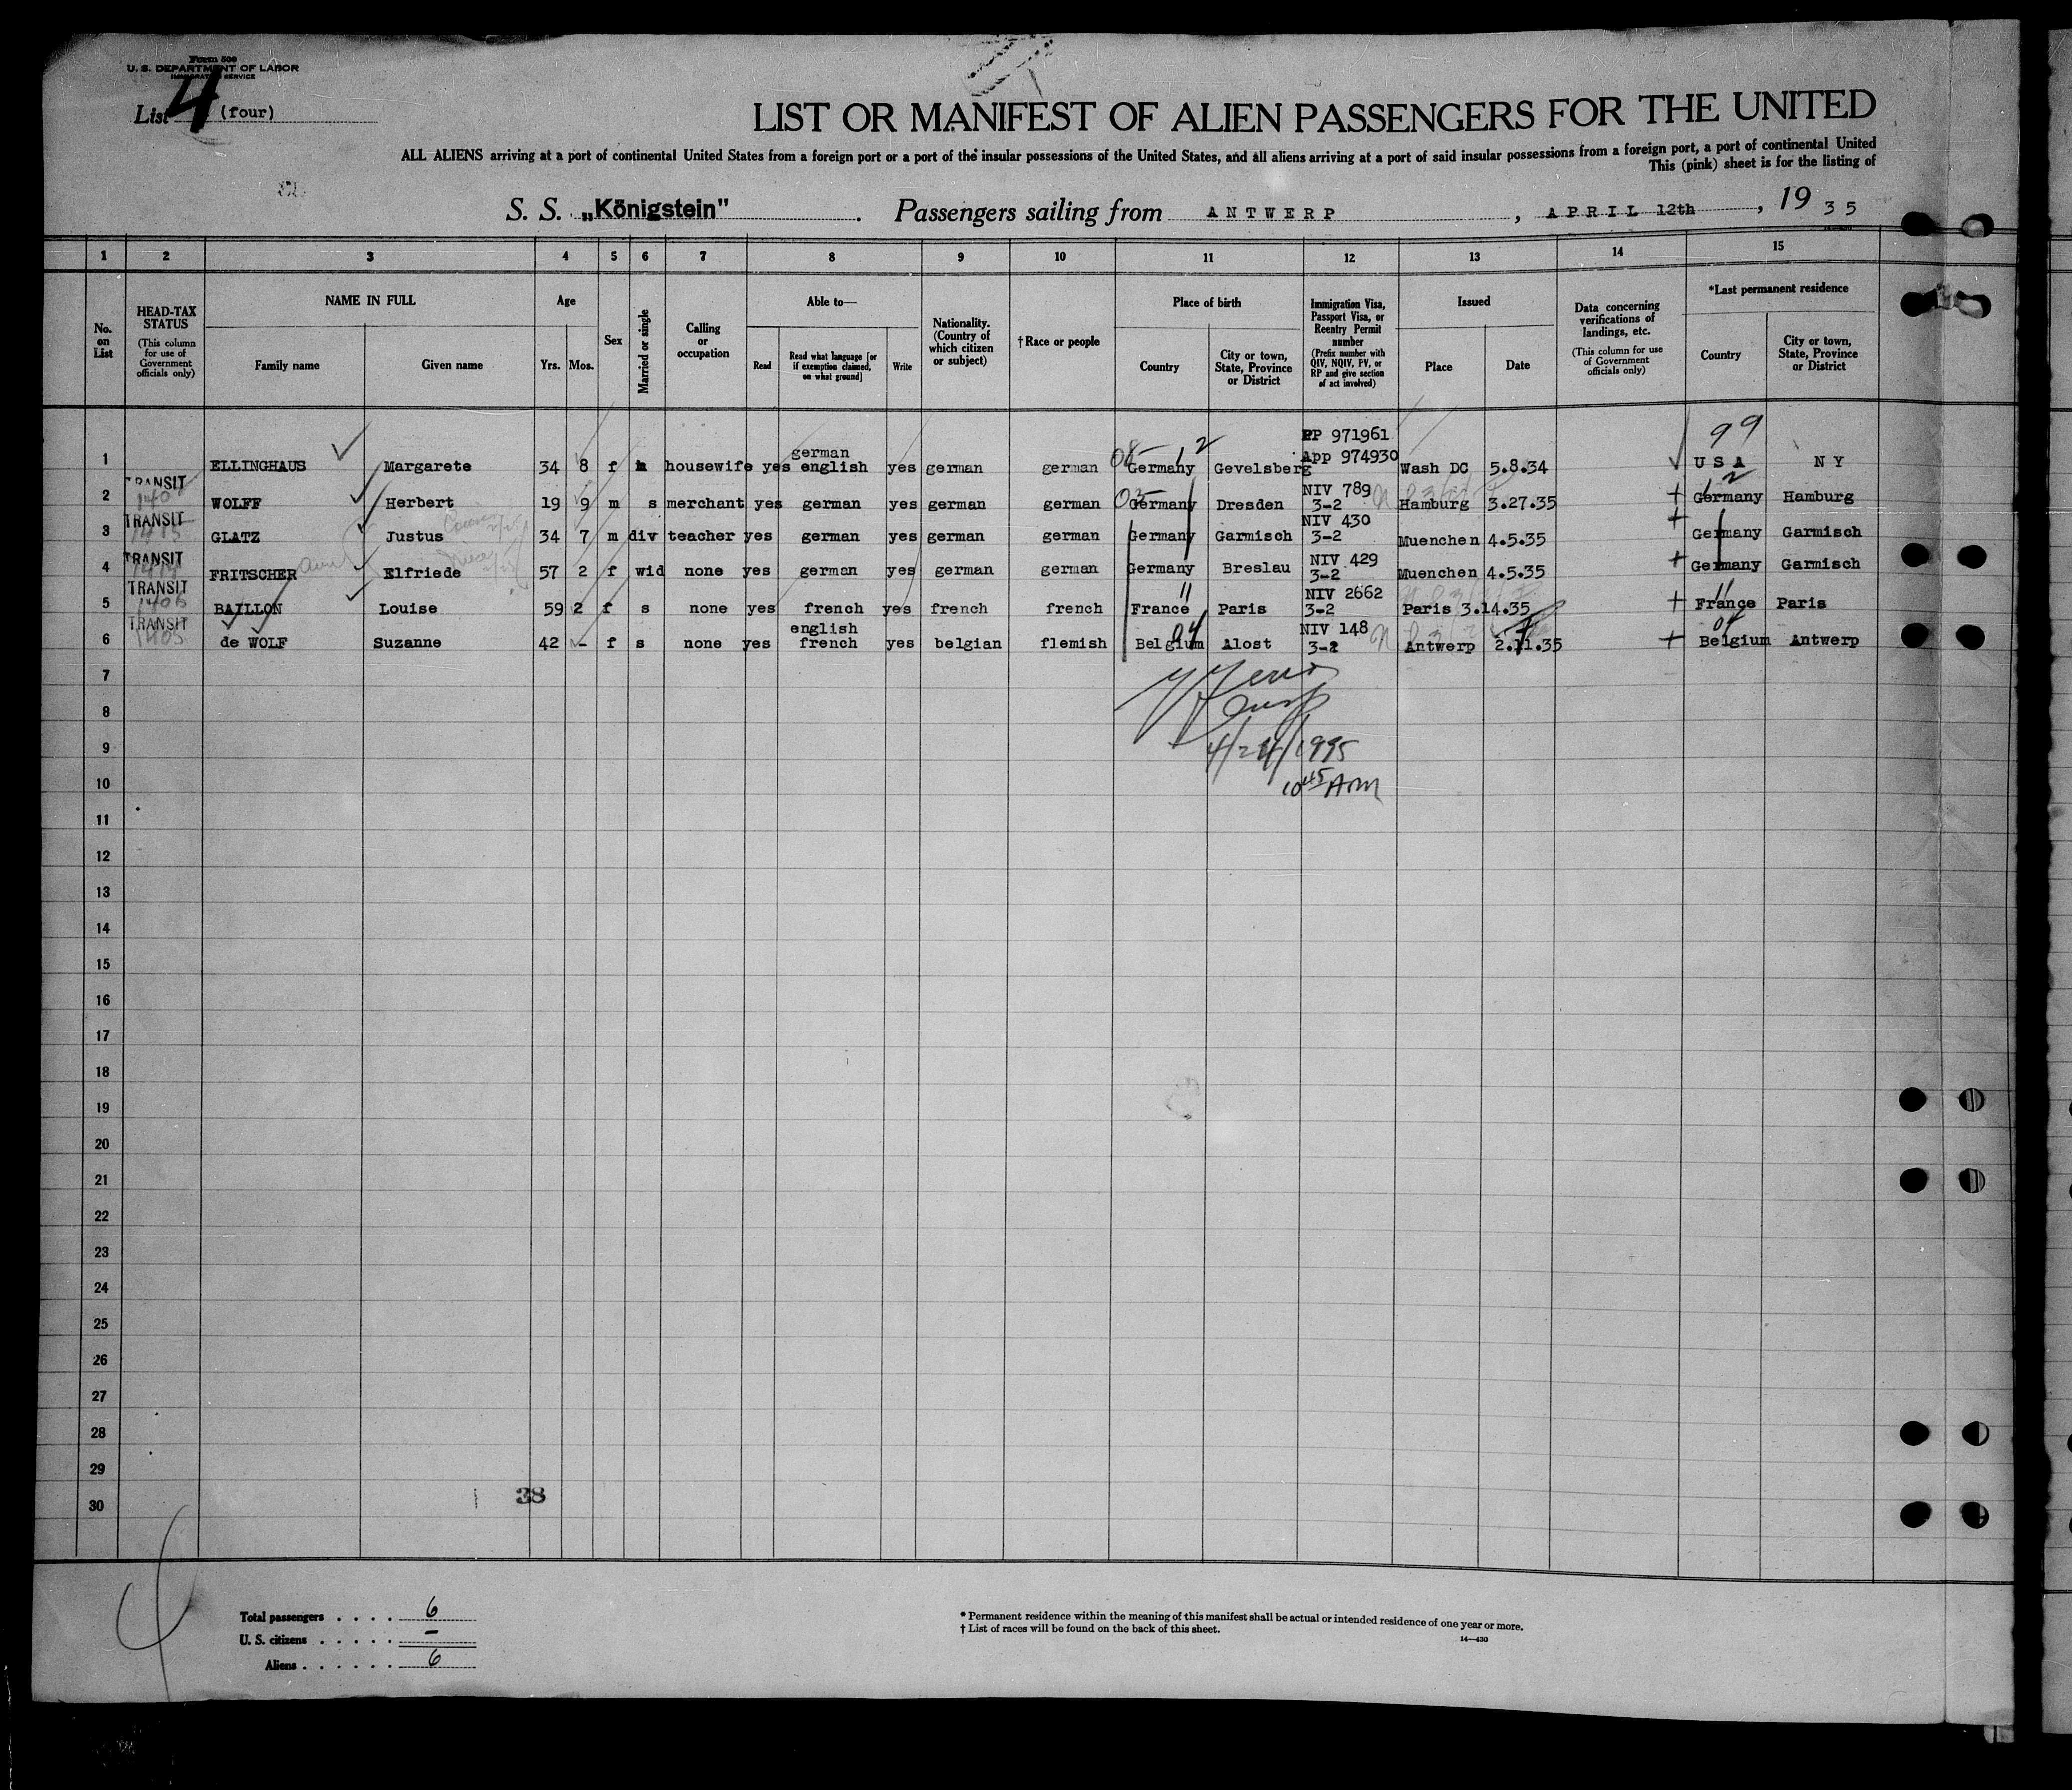 Form 500
U. S. DEPARTMENT OF LABOR
IMMIGRATION SERVICE
List 4 (four)
LIST OR MANIFEST OF ALIEN PASSENGERS FOR THE UNITED
ALL ALIENS arriving at a port of continental United States from a foreign port or a port of the insular possessions of the United States, and all aliens arriving at a port of said insular possessions from a foreign port, a port of continental United
This (pink) sheet is for the listing of
S. S. „Königstein" . Passengers sailing from ANTWERP , APRIL 12th , 19 35
1 2 3 4 5 6 7 8 9 10 11 12 13 14 15
No. on List
HEAD-TAX STATUS (This column for use of Government officials only)
NAME IN FULL
Family name Given name
Age
Yrs. Mos.
Sex
Married or single
Calling or occupation
Able to—
Read
Read what language [or if exemption claimed, on what ground]
Write
Nationality. (Country of which citizen or subject)
†Race or people
Place of birth
Country
City or town, State, Province or District
Immigration Visa, Passport Visa, or Reentry Permit number (Prefix number with QIV, NQIV, PV, or RP and give section of act involved)
Issued
Place Date
Data concerning verifications of landings, etc. (This column for use of Government officials only)
*Last permanent residence
Country
City or town, State, Province or District
99
RP 971961
german App 974930
1 ELLINGHAUS Margarete 34 8 f housewife yes english yes german german Germany Gevelsberg Wash DC 5.8.34 U S A N Y
TRANSIT NIV 789
2 WOLFF Herbert 19 9 m s merchant yes german yes german german Germany Dresden 3-2 Hamburg 3.27.35 Germany Hamburg
TRANSIT NIV 430
3 GLATZ Justus 34 7 m div teacher yes german yes german german Germany Garmisch 3-2 Muenchen 4.5.35 Germany Garmisch
TRANSIT NIV 429
4 FRITSCHER Elfriede 57 2 f wid none yes german yes german german Germany Breslau 3-2 Muenchen 4.5.35 Germany Garmisch
TRANSIT 11 NIV 2662 11
5 BAILLON Louise 59 2 f s none yes french yes french french France Paris 3-2 Paris 3.14.35 France Paris
TRANSIT english NIV 148 04
6 de WOLF Suzanne 42 - f s none yes french yes belgian flemish Belgium Alost 3-2 Antwerp 2.11.35 Belgium Antwerp
7
8
9 4/24/1935
10 10 45 AM
11
12
13
14
15
16
17
18
19
20
21
22
23
24
25
26
27
28
29
30
38
Total passengers . . . . 6
U. S. citizens . . . . . –
Aliens . . . . . . 6
* Permanent residence within the meaning of this manifest shall be actual or intended residence of one year or more.
† List of races will be found on the back of this sheet.
14—430